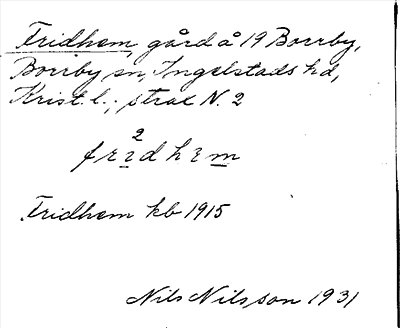 Fridhem, gård å 19 Borrby,
Borrby sn, Ingelstads hd,
Krist. l.; strax N. 2
2
Fridhem kb 1915
Nils Nilsson 1931